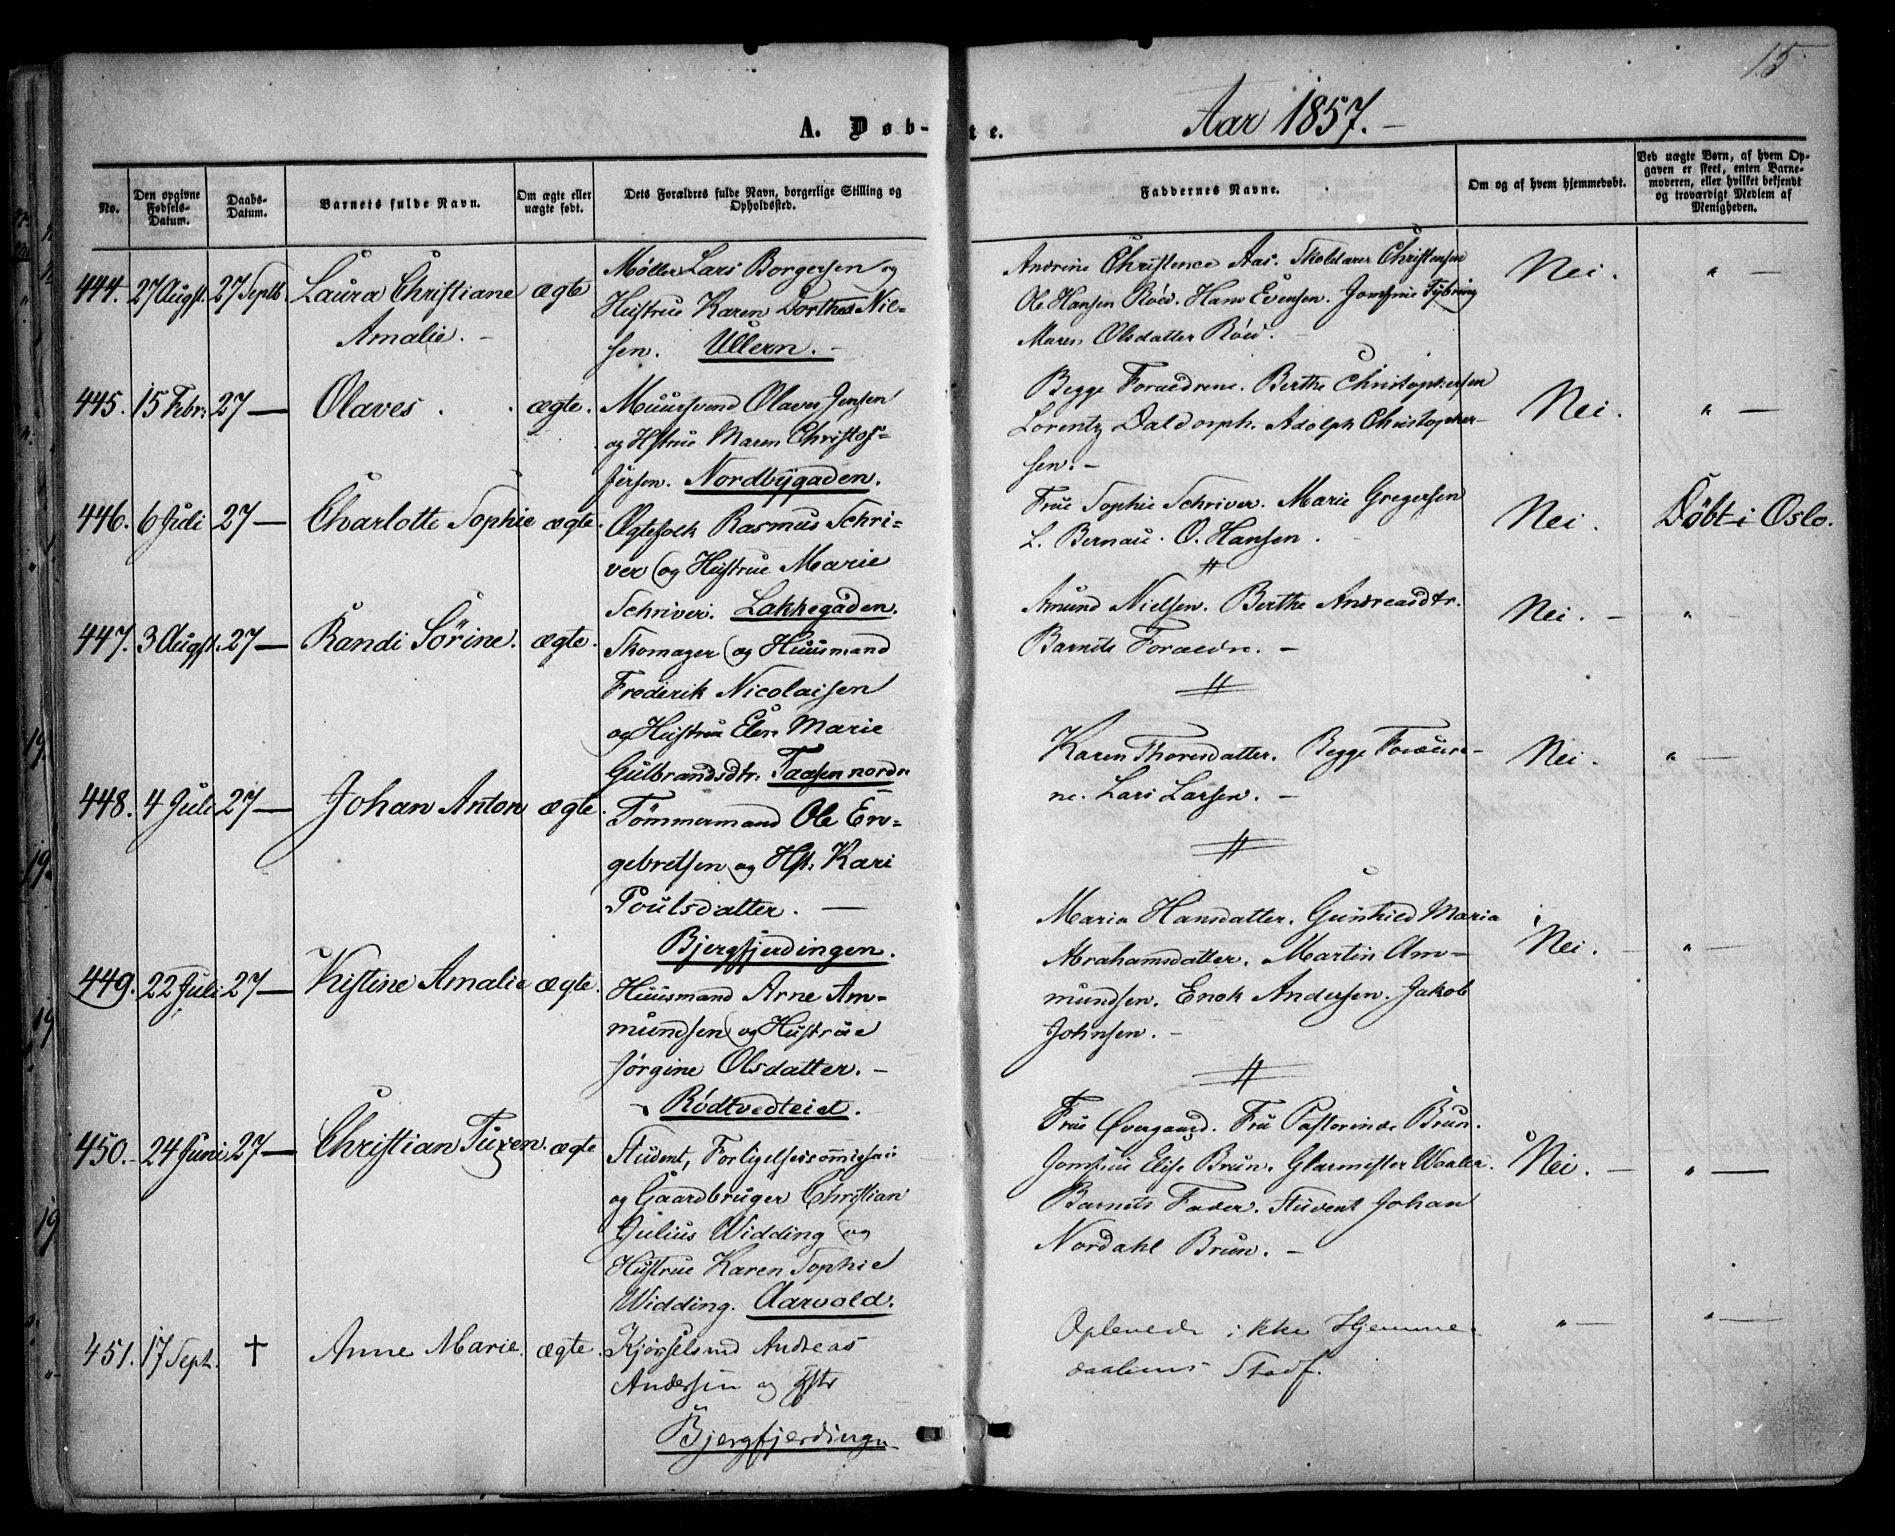 15
A. Døb-te.
Aar 1857.-
No.
Den opgivne Fødsels-Datum.
Daabs-Datum.
Barnets fulde Navn.
Om ægte eller uægte født.
Dets Forældres fulde Navn, borgerlige Stilling og Opholdssted.
Faddernes Navne.
Om og af hvem hjemmedøbt.
Ved uægte Børn, af hvem Opgaven er skeet, enten Barnemoderen, eller hvilket bekjendt og troværdigt Medlem af Menigheden.
444. 27 Augst. 27 Septb Laura Christiane Amalie. - ægte
Møller Lars Borgersen og
Hustrue Karen Dorthea Niel-
sen. Ullern. -
Andrine Christence Aas. Skoldarer Christensen
Ole Hansen Röed. Hans Evensen. Jomfrue Fybring
Maren Olsdatter Röed.
Nei. " -
445. 15 Febr: 27 - Olaves . ægte.
Muursvend Olaves Jensen
og Hstrue Maren Christof-
fersen. Nordbygaden.
Begge Foraedrene. Berthe Christophersen
Lorentz Daldorph. Adolph Christopher-
sen. -
Nei. " -
446. 6 Juli 27 - Charlotte Sophie ægte.
Ægtefolk Rasmus Schri-
ver og Hustrue Marie
Schriver. Lakkegaden.
Frue Sophie Schriver. Marie Gregersen
L. Bernau. O. Hansen.
Nei. Døbt i Oslo.
447. 3 Augst. 27 - Randi Sörine. ægte.
Skomager og Huusmand
Frederik Nicolaisen
og Hustrue Elen Marie
Gulbrandsdtr: Taasen nordr
Amund Nielsen. Berthe Andreasdtr.
Barnets Foraeldre. -
Nei. - " -
448. 4 Juli 27 - Johan Anton ægte.
Tömmermand Ole En-
gebretsen og Hst: Kari
Poulsdatter. -
Bjergfjerdingen.
Karen Thoresdatter. Begge Foraeldre-
ne. Lars Larsen. -
Nei. " -
449. 22 Juli 27 - Kistine Amalie ægte.
Huusmand Arne Am-
mundsen og Hustrue
Jörgine Olsdatter. -
Rödtvedteiet.
Maria Hansdatter. Gunhild Maria
Abrahamsdatter. Martin Am-
mundsen. Enok Andersen. Jakob
Johnsen. -
Nei. - " -
450. 24 Juni 27 - Christian Tuxen. ægte
Student, Forligelsescommissair
og Gaardbruger Christian
Julius Widding og
Hustrue Karen Sophie
Widding. Aarvold.
Frue Övergaard. Fru Pastorinde Brun.
Jomfrue Elise Brun. Glarmester Waaler.
Barnets Fader. Student Johan
Nordahl Brun. -
Nei. - " -
451. 17 Sept. † Anne Marie. ægte.
Kjørselsmd Andreas
Andersen og Hstr
Bjergfjerdingn
Oplevede ikke Hjemme-
daabens Stadf.
" - " -